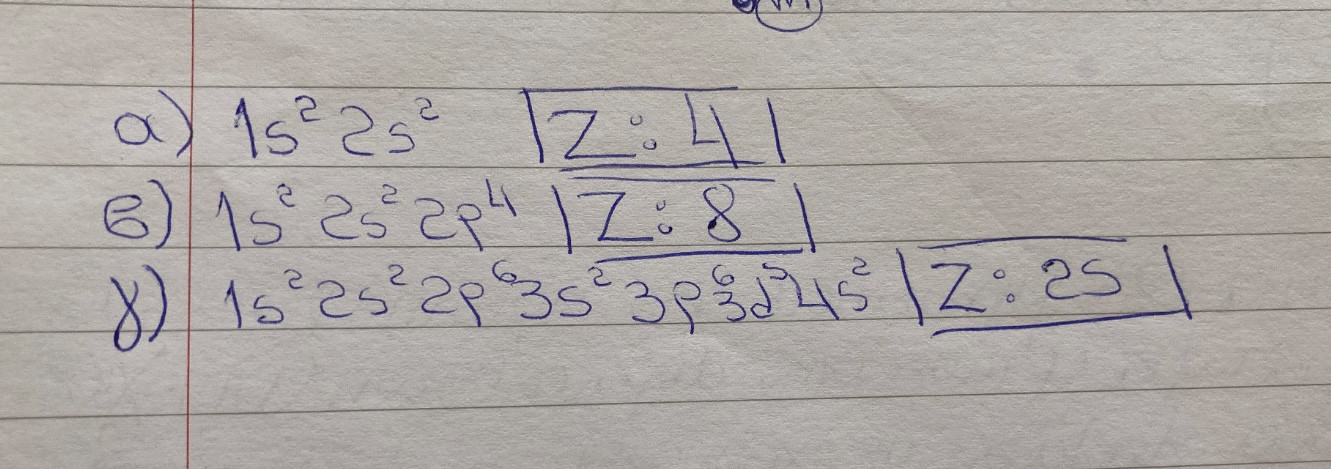 α) 1s² 2s² Z: 4
β) 1s² 2s² 2p⁴ Z: 8
γ) 1s² 2s² 2p⁶ 3s² 3p⁶ 3d⁵ 4s² Z: 25